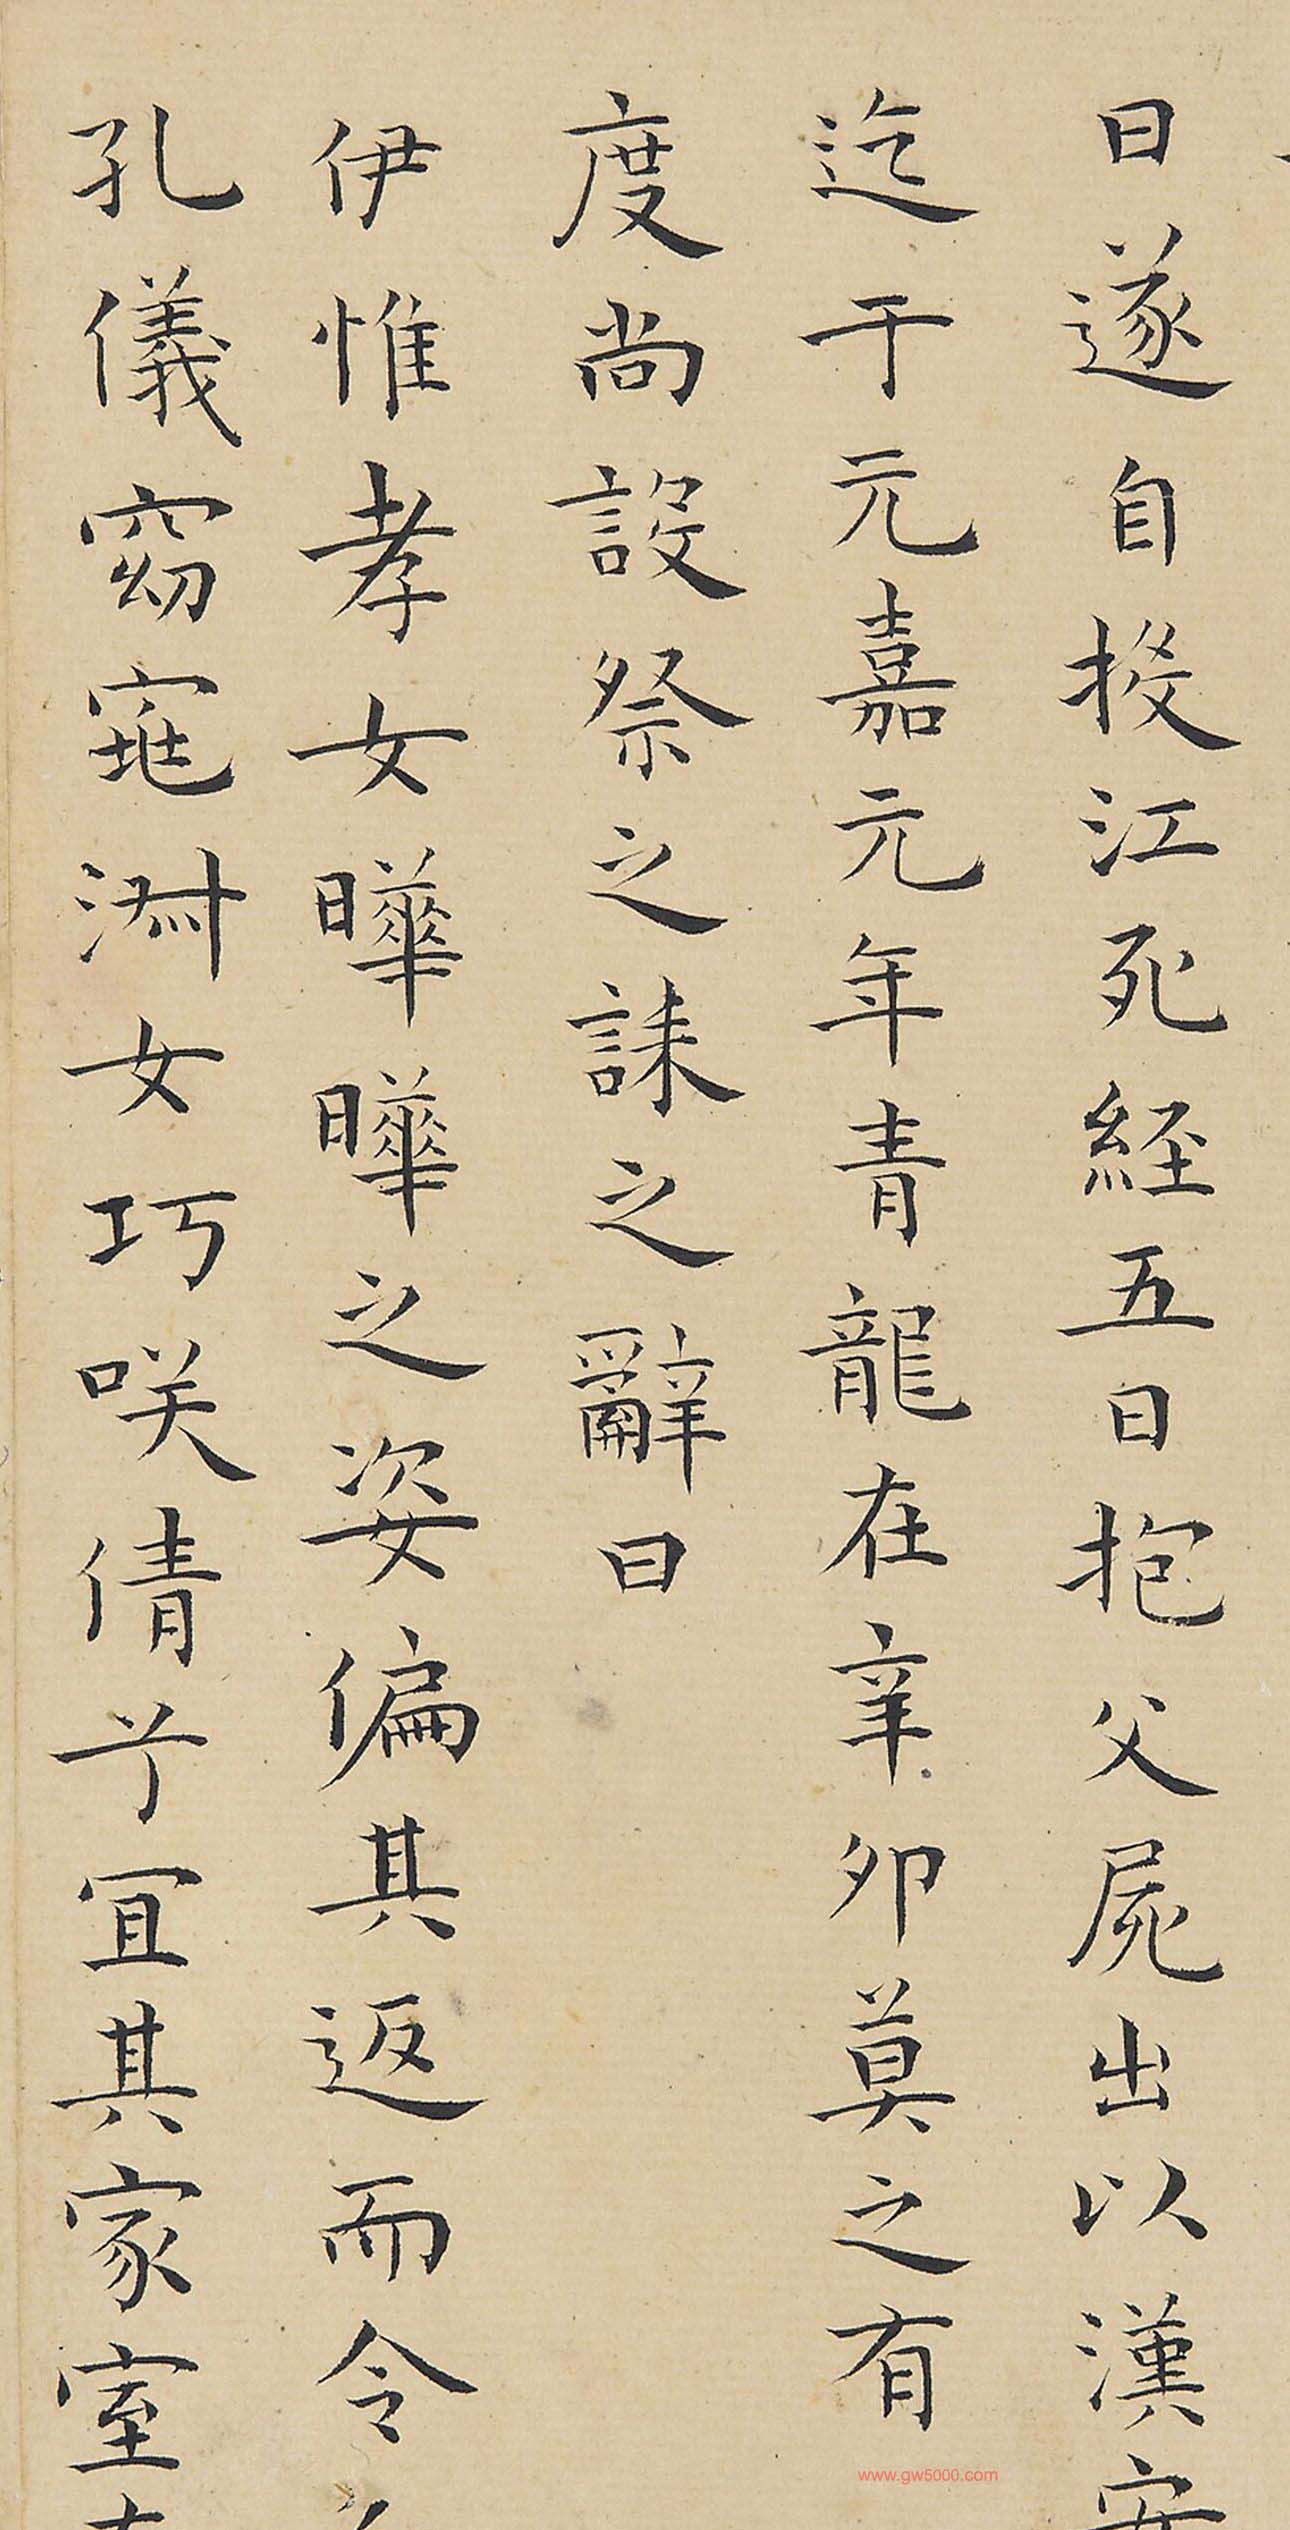 日遂自投江死経五日抱父屍出以漢安
迄于元嘉元年青龍在辛卯莫之有
度尚設祭之誄之辭曰
伊惟孝女曄曄之姿偏其返而令
孔儀窈窕淑女巧咲倩兮宜其家室
www.gw5000.com